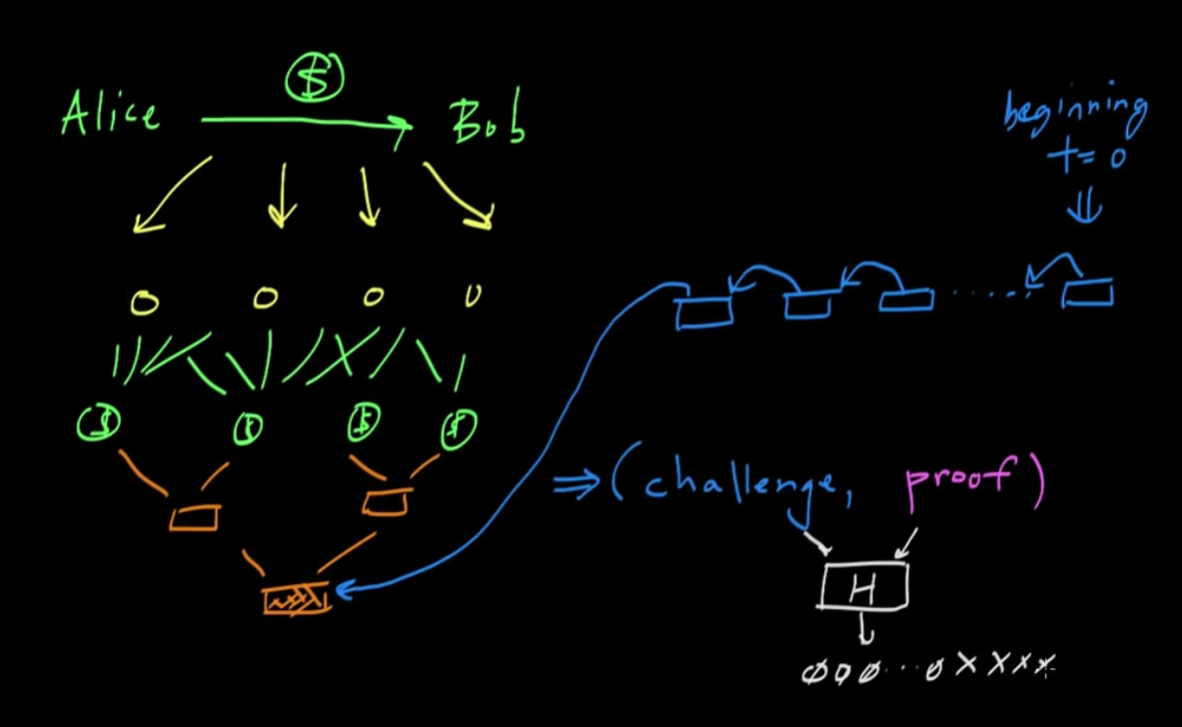 $
Alice Bob
beginning
t=0
0 0 0 0
$ $ $ $
⇒ (challenge, proof)
H
000...0xxxx